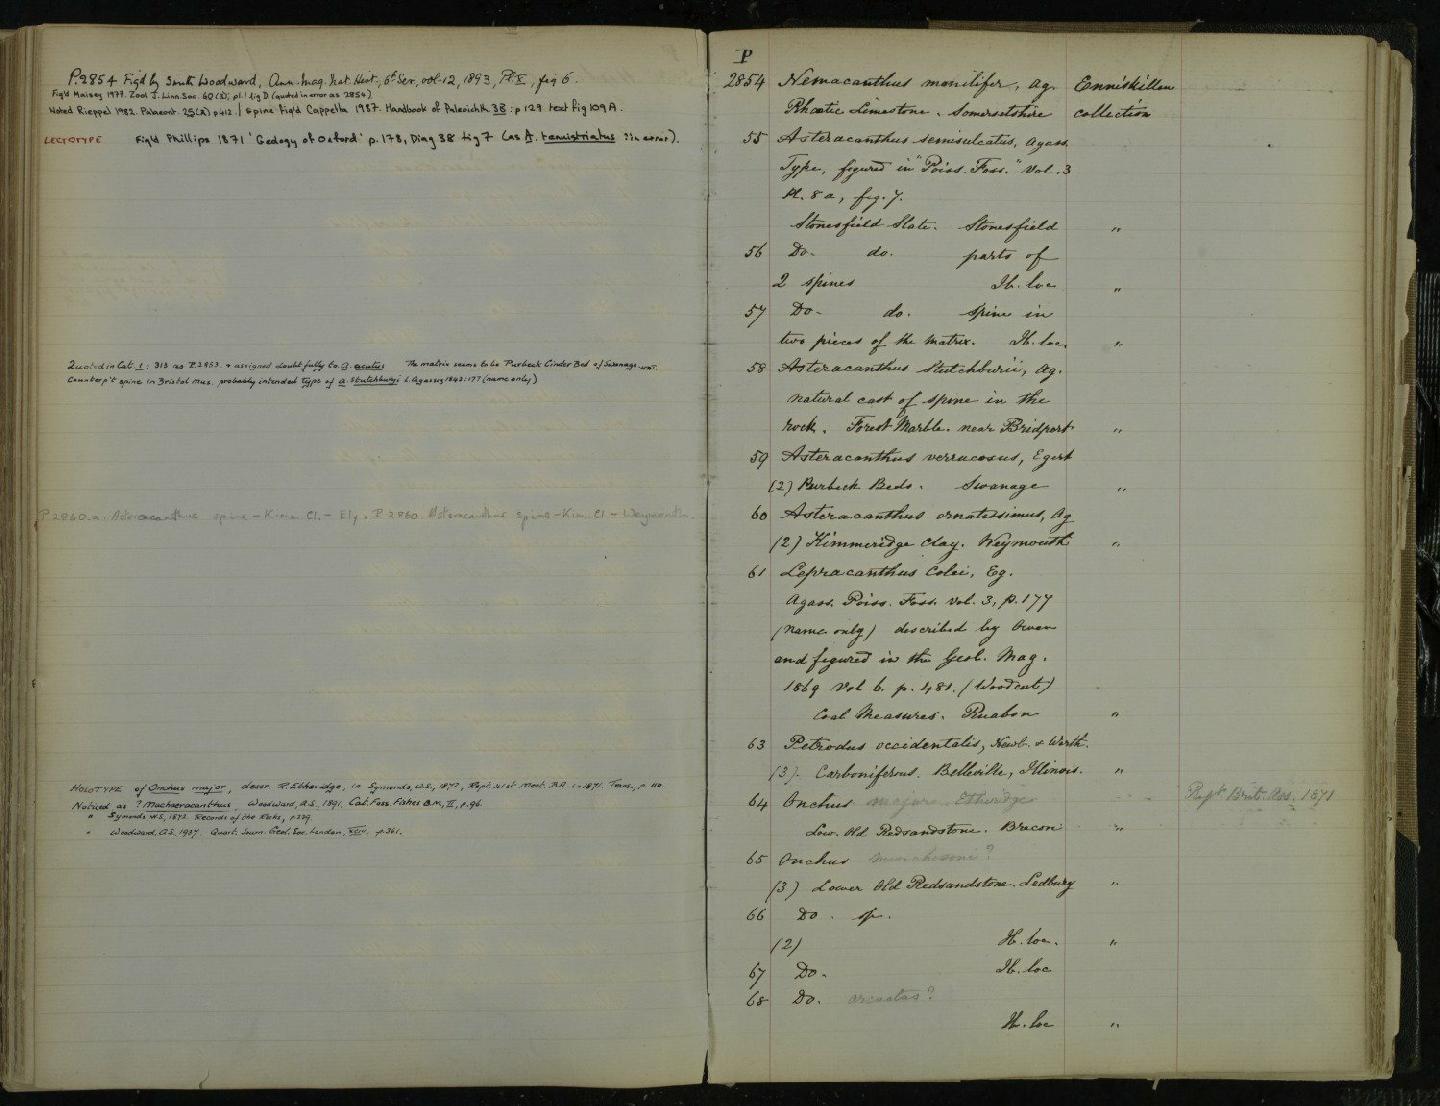 P.2854 Fig'd by Smith Woodward, Ann. Mag. Nat. Hist., 6th Ser, vol. 12, 1893, Pl. X, fig 6.
Fig'd Maisey 1977. Zool J. Linn. Soc. 60 (3), pl. 1 fig D (quoted in error as 2854)
Noted Rieppel 1982. Palaeont. 25(2) p412. / Spine Fig'd Cappetta 1987. Handbook of Paleoichth. 3B : p 129 text fig 109 A.
LECTOTYPE Fig'd Phillips 1871 'Geology of Oxford' p. 178, Diag 38 fig 7 (as A. tenuistriatus in error).
Quoted in Cat. 1 : 313 as P.2853. & assigned doubtfully to A. acutus The matrix seems to be Purbeck Cinder Bed of Swanage
Counterp't spine in Bristol Mus. probably intended type of A. Stutchburyi L. Agassiz 1843:177 (name only)
P 2860.a. Asteracanthus spine - Kim. Cl. - Ely. P. 2860. Asteracanthus spine - Kim. Cl - Weymouth.
HOLOTYPE of Onchus major, descr. R. Etheridge, in Symonds, W.S., 1872, Rept. 41st Meet. B.A. in 1871. Trans., p. 110
Noticed as ? Machaeracanthus, Woodward, A.S. 1891. Cat. Foss. Fishes B.M., II, p. 96.
" Symonds W.S., 1872. Records of the Rocks, p.229.
" Woodward, A.S. 1937. Quart. Journ. Geol. Soc. London, p.361.
P
2854 Nemacanthus monilifer, Ag. Enniskillen
Rhœtic Limestone. Somersetshire collection
55 Asteracanthus semisulcatus, Agass.
Type, figured in "Poiss. Foss." Vol. 3
Pl. 8a, fig. 7.
Stonesfield Slate. Stonesfield "
56 Do. do. parts of
2 spines Ib. loc "
57 Do. do. Spine in
two pieces of the matrix. Ib. loc. "
58 Asteracanthus Stutchburii, Ag.
natural cast of spine in the
rock. Forest Marble. near Bridport "
59 Asteracanthus verrucosus, Egert
(2) Purbeck Beds. Swanage "
60 Asteracanthus ornatissimus, Ag
(2) Kimmeridge Clay. Weymouth "
61 Lepracanthus Colei, Eg.
Agass. Poiss. Foss. Vol. 3, p. 177
(name only) described by Owen
and figured in the Geol. Mag.
1869 Vol 6. p. 481. (Woodcut)
Coal Measures. Ruabon "
63 Petrodus occidentalis, Newb. & Worth.
(3). Carboniferous. Belleville, Illinois. "
64 Onchus major. Etheridge Rept. Brit. Ass. 1871
Low. Old Redsandstone. Brecon "
65 Onchus murchisoni?
(3) Lower Old Redsandstone. Ledbury "
66 Do. sp.
(2) Ib. loc. "
67 Do. Ib. loc
68 Do. arcuatus?
Ib. loc "